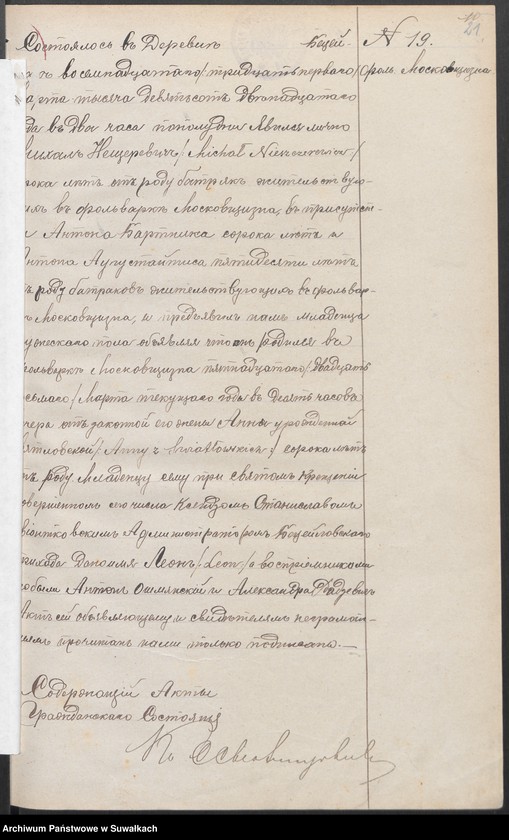 10
21
Состоялось въ Деревнѣ Бецей.
N 19.
восемнадцатаго / тридцать перваго /
Фоль. Московщизна
Марта тысяча девятьсотъ двѣнадцатаго
года въ два часа пополудни Явился лично
Михалъ Нещеревичъ / Michał /
сорока лѣтъ отъ роду батракъ жительствую-
въ фольваркѣ Московщизна, въ присутст-
Антона Бартника сорока лѣтъ и
Антона Аугустайтиса пятидесяти лѣтъ
роду батраковъ жительствующихъ въ фольвар-
Московщизна, и предъявилъ намъ младенца
мужескаго пола объявляя что онъ родился въ
фольваркѣ Московщизна пятнадцатаго / двадцать
восьмаго / Марта текущаго года въ десять часовъ
вечера отъ законной его жены Анны урожденной
/ Anny z / сорока лѣтъ
роду Младенцу сему при святомъ крещеніи
совершенномъ сего числа Ксендзомъ Станиславомъ
Администраторомъ
прихода Дано имя Леонъ / Leon / а воспріемниками
были Антонъ Ошмянскій и Александра
Актъ сей объявляющему и свидѣтелямъ неграмот-
нымъ прочитанъ нами только подписанъ. —
Содержащій Акты
Гражданскаго Состоянія
Archiwum Państwowe w Suwałkach